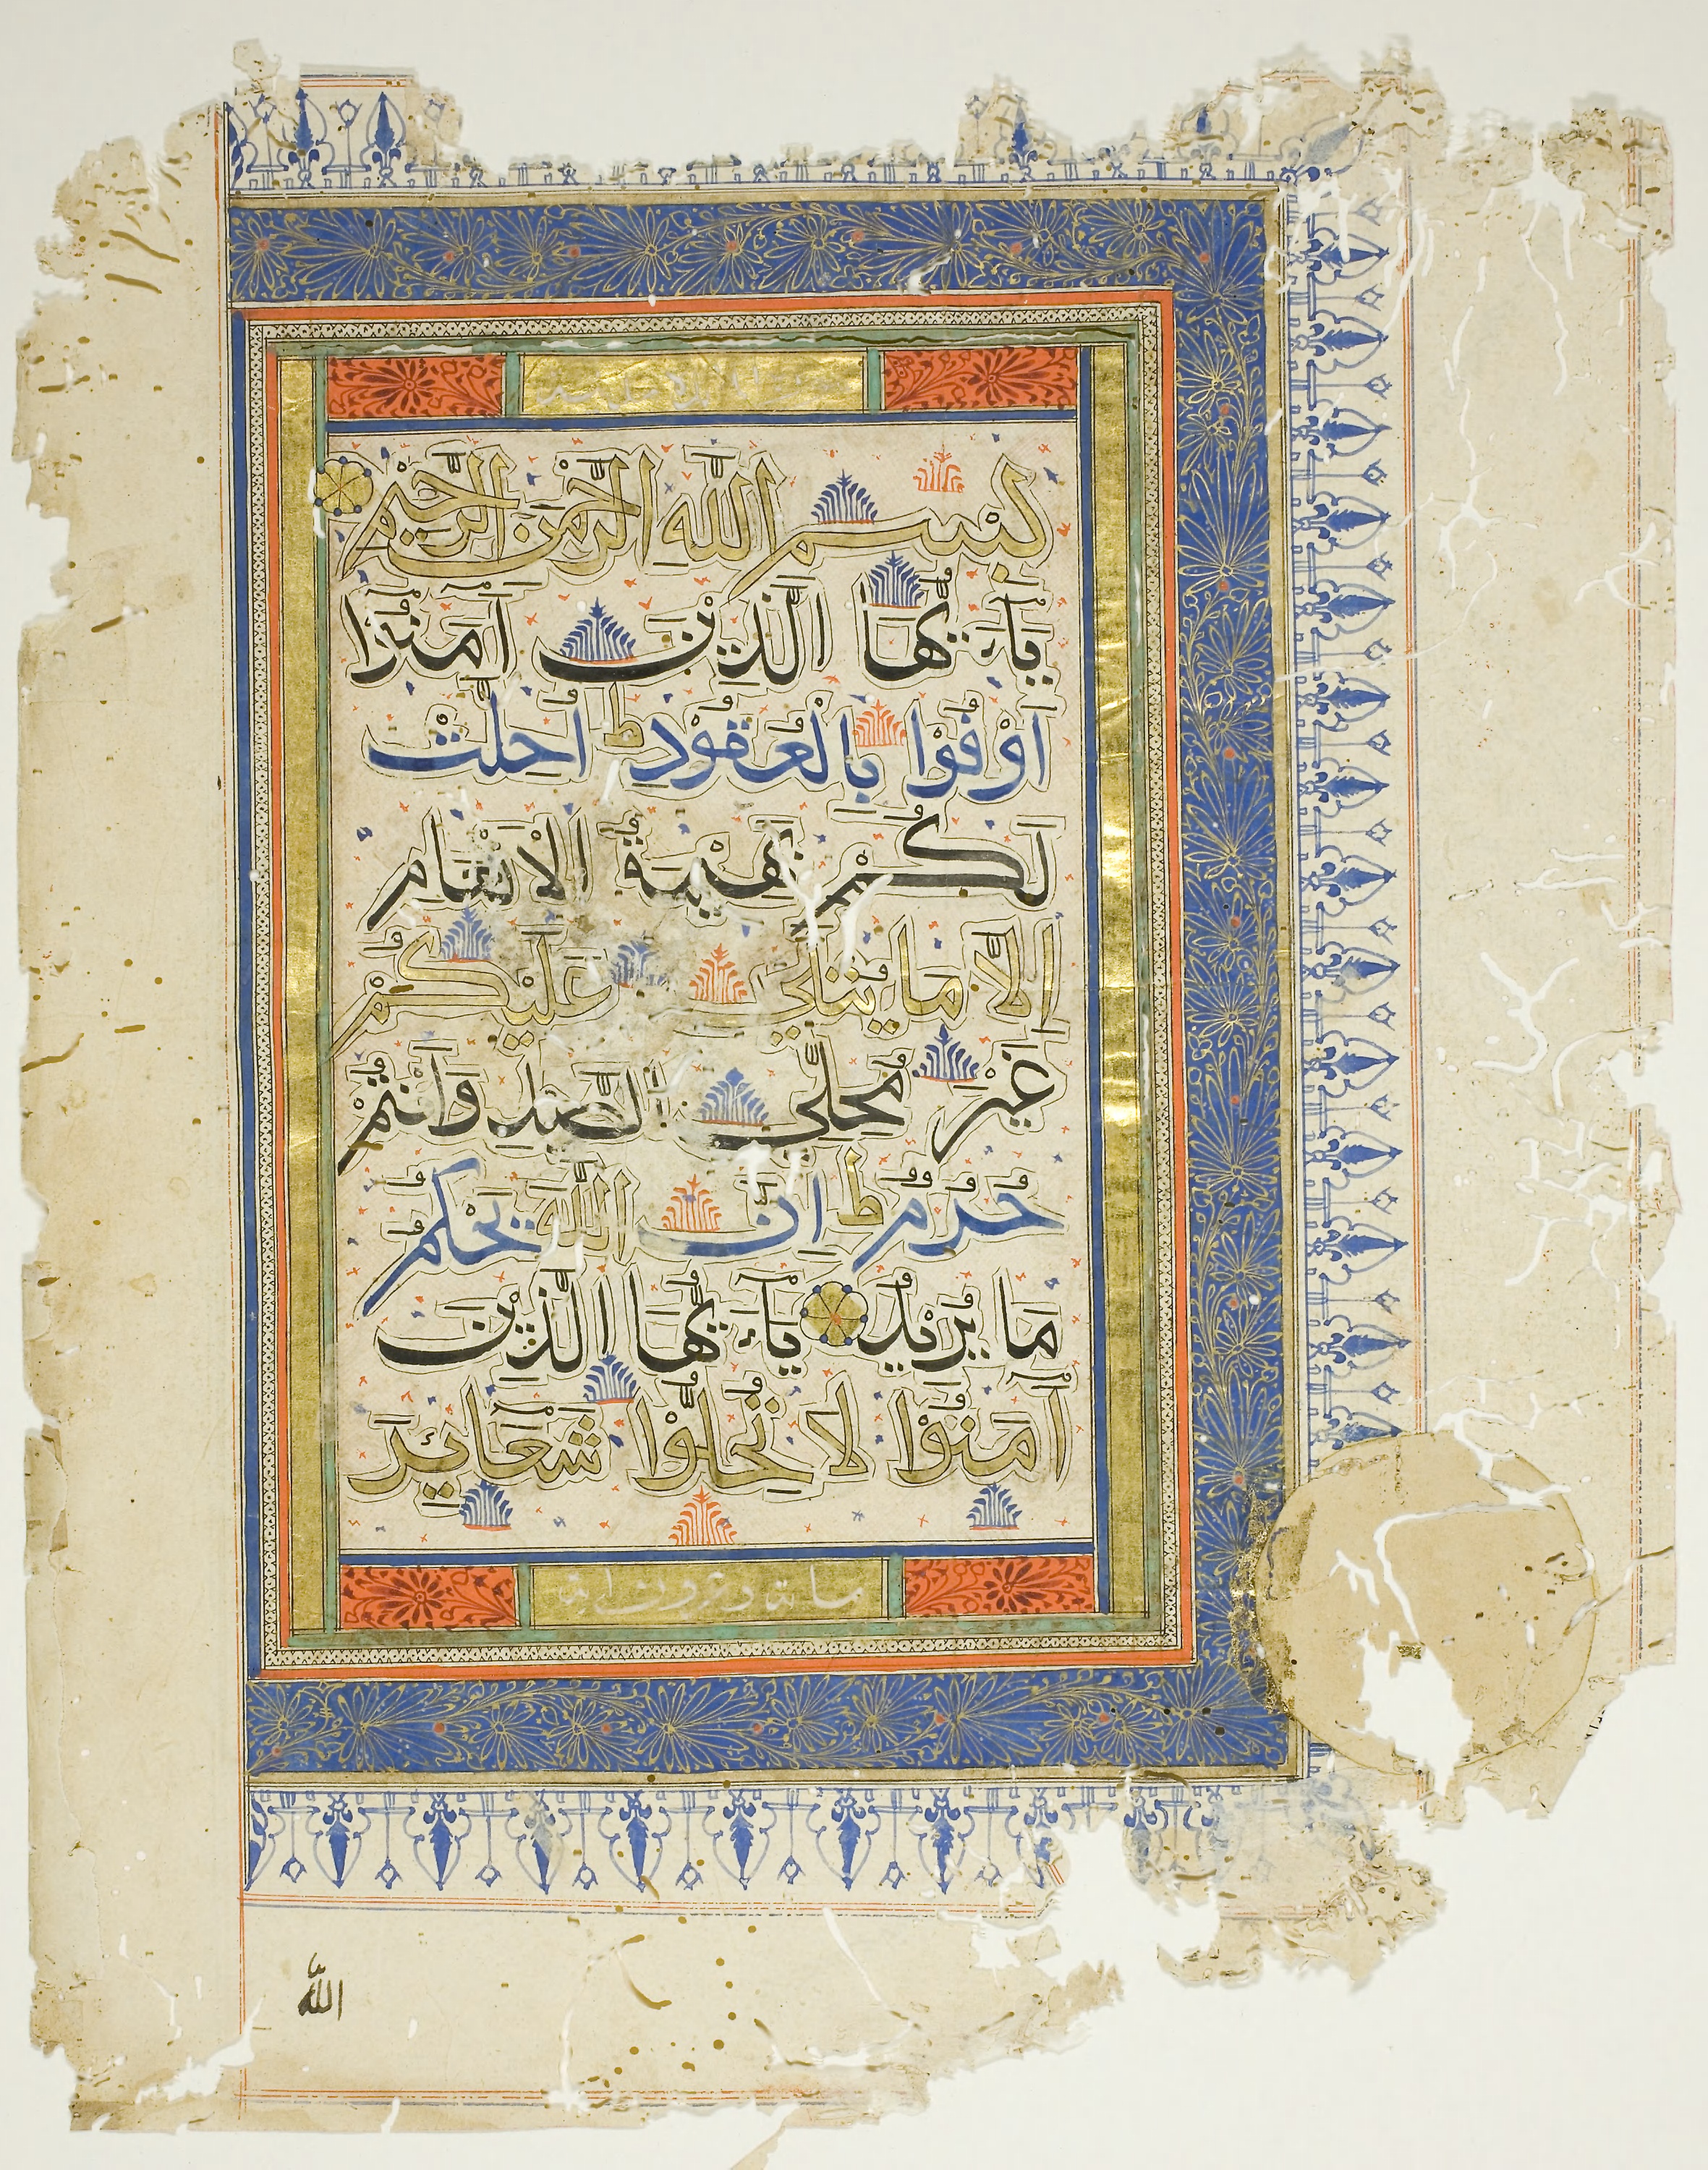 بِسْمِ اللّٰهِ الرَّحْمٰنِ الرَّحِيْمِ
يَآءَيُّهَا الَّذِيْنَ آمَنُوْا
اَوْفُوْا بِالْعُقُوْدِ ط اُحِلَّتْ
لَكُمْ بَهِيْمَةُ الْاَنْعَامِ
اِلَّا مَا يُتْلٰي عَلَيْكُمْ
غَيْرَ مُحِلِّي الصَّيْدِ وَاَنْتُمْ
حُرُمٌ ط اِنَّ اللّٰهَ يَحْكُمُ
مَا يُرِيْدُ يَآءَيُّهَا الَّذِيْنَ
آمَنُوْا لَا تُحِلُّوْا شَعَآىِٕرَ
اللّٰه